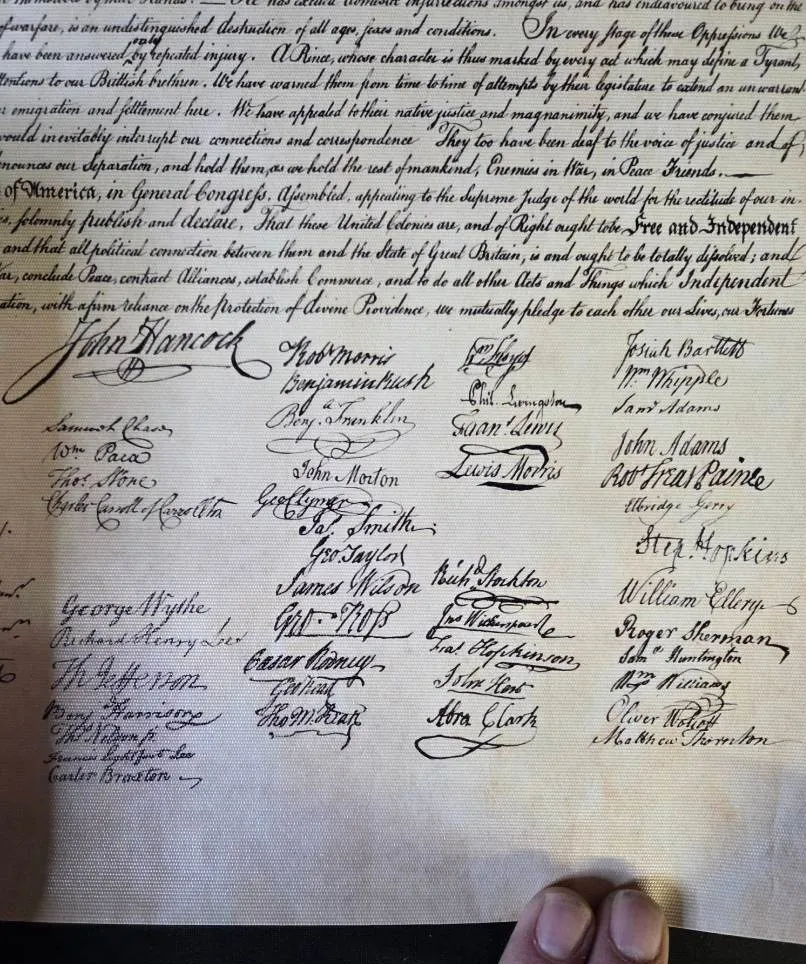 has excited domestic insurrections amongst us, and has endeavoured to bring on the
of warfare, is an undistinguished destruction of all ages, sexes and conditions. In every stage of these Oppressions We
have been answered only by repeated injury. A Prince, whose character is thus marked by every act which may define a Tyrant,
ttentions to our Brittish brethren. We have warned them from time to time of attempts by their legislature to extend an unwarrant
r emigration and settlement here. We have appealed to their native justice and magnanimity, and we have conjured them
would inevitably interrupt our connections and correspondence They too have been deaf to the voice of justice and of
nounces our Separation, and hold them, as we hold the rest of mankind, Enemies in War, in Peace Friends.
of America, in General Congress, Assembled, appealing to the Supreme Judge of the world for the rectitude of our in-
es, solemnly publish and declare, That these United Colonies are, and of Right ought to be Free and Independent
and that all political connection between them and the State of Great Britain, is and ought to be totally dissolved; and
War, conclude Peace, contract Alliances, establish Commerce, and to do all other Acts and Things which Independent
ation, with a firm reliance on the protection of divine Providence, we mutually pledge to each other our Lives, our Fortunes
John Hancock
Samuel Chase
Wm. Paca
Thos. Stone
Charles Carroll of Carrollton
George Wythe
Richard Henry Lee
Th Jefferson
Benj Harrison
Thos Nelson jr.
Francis Lightfoot Lee
Carter Braxton
Robt Morris
Benjamin Rush
Benja. Franklin
John Morton
Geo Clymer
Jas. Smith
Geo Taylor
James Wilson
Geo. Ross
Caesar Rodney
Geo Read
Tho M:Kean
Wm Floyd
Phil. Livingston
Frans. Lewis
Lewis Morris
Richd Stockton
Jno Witherspoon
Fras. Hopkinson
John Hart
Abra Clark
Josiah Bartlett
Wm Whipple
Saml Adams
John Adams
Robt Treat Paine
Elbridge Gerry
Step. Hopkins
William Ellery
Roger Sherman
Saml Huntington
Wm Williams
Oliver Wolcott
Matthew Thornton